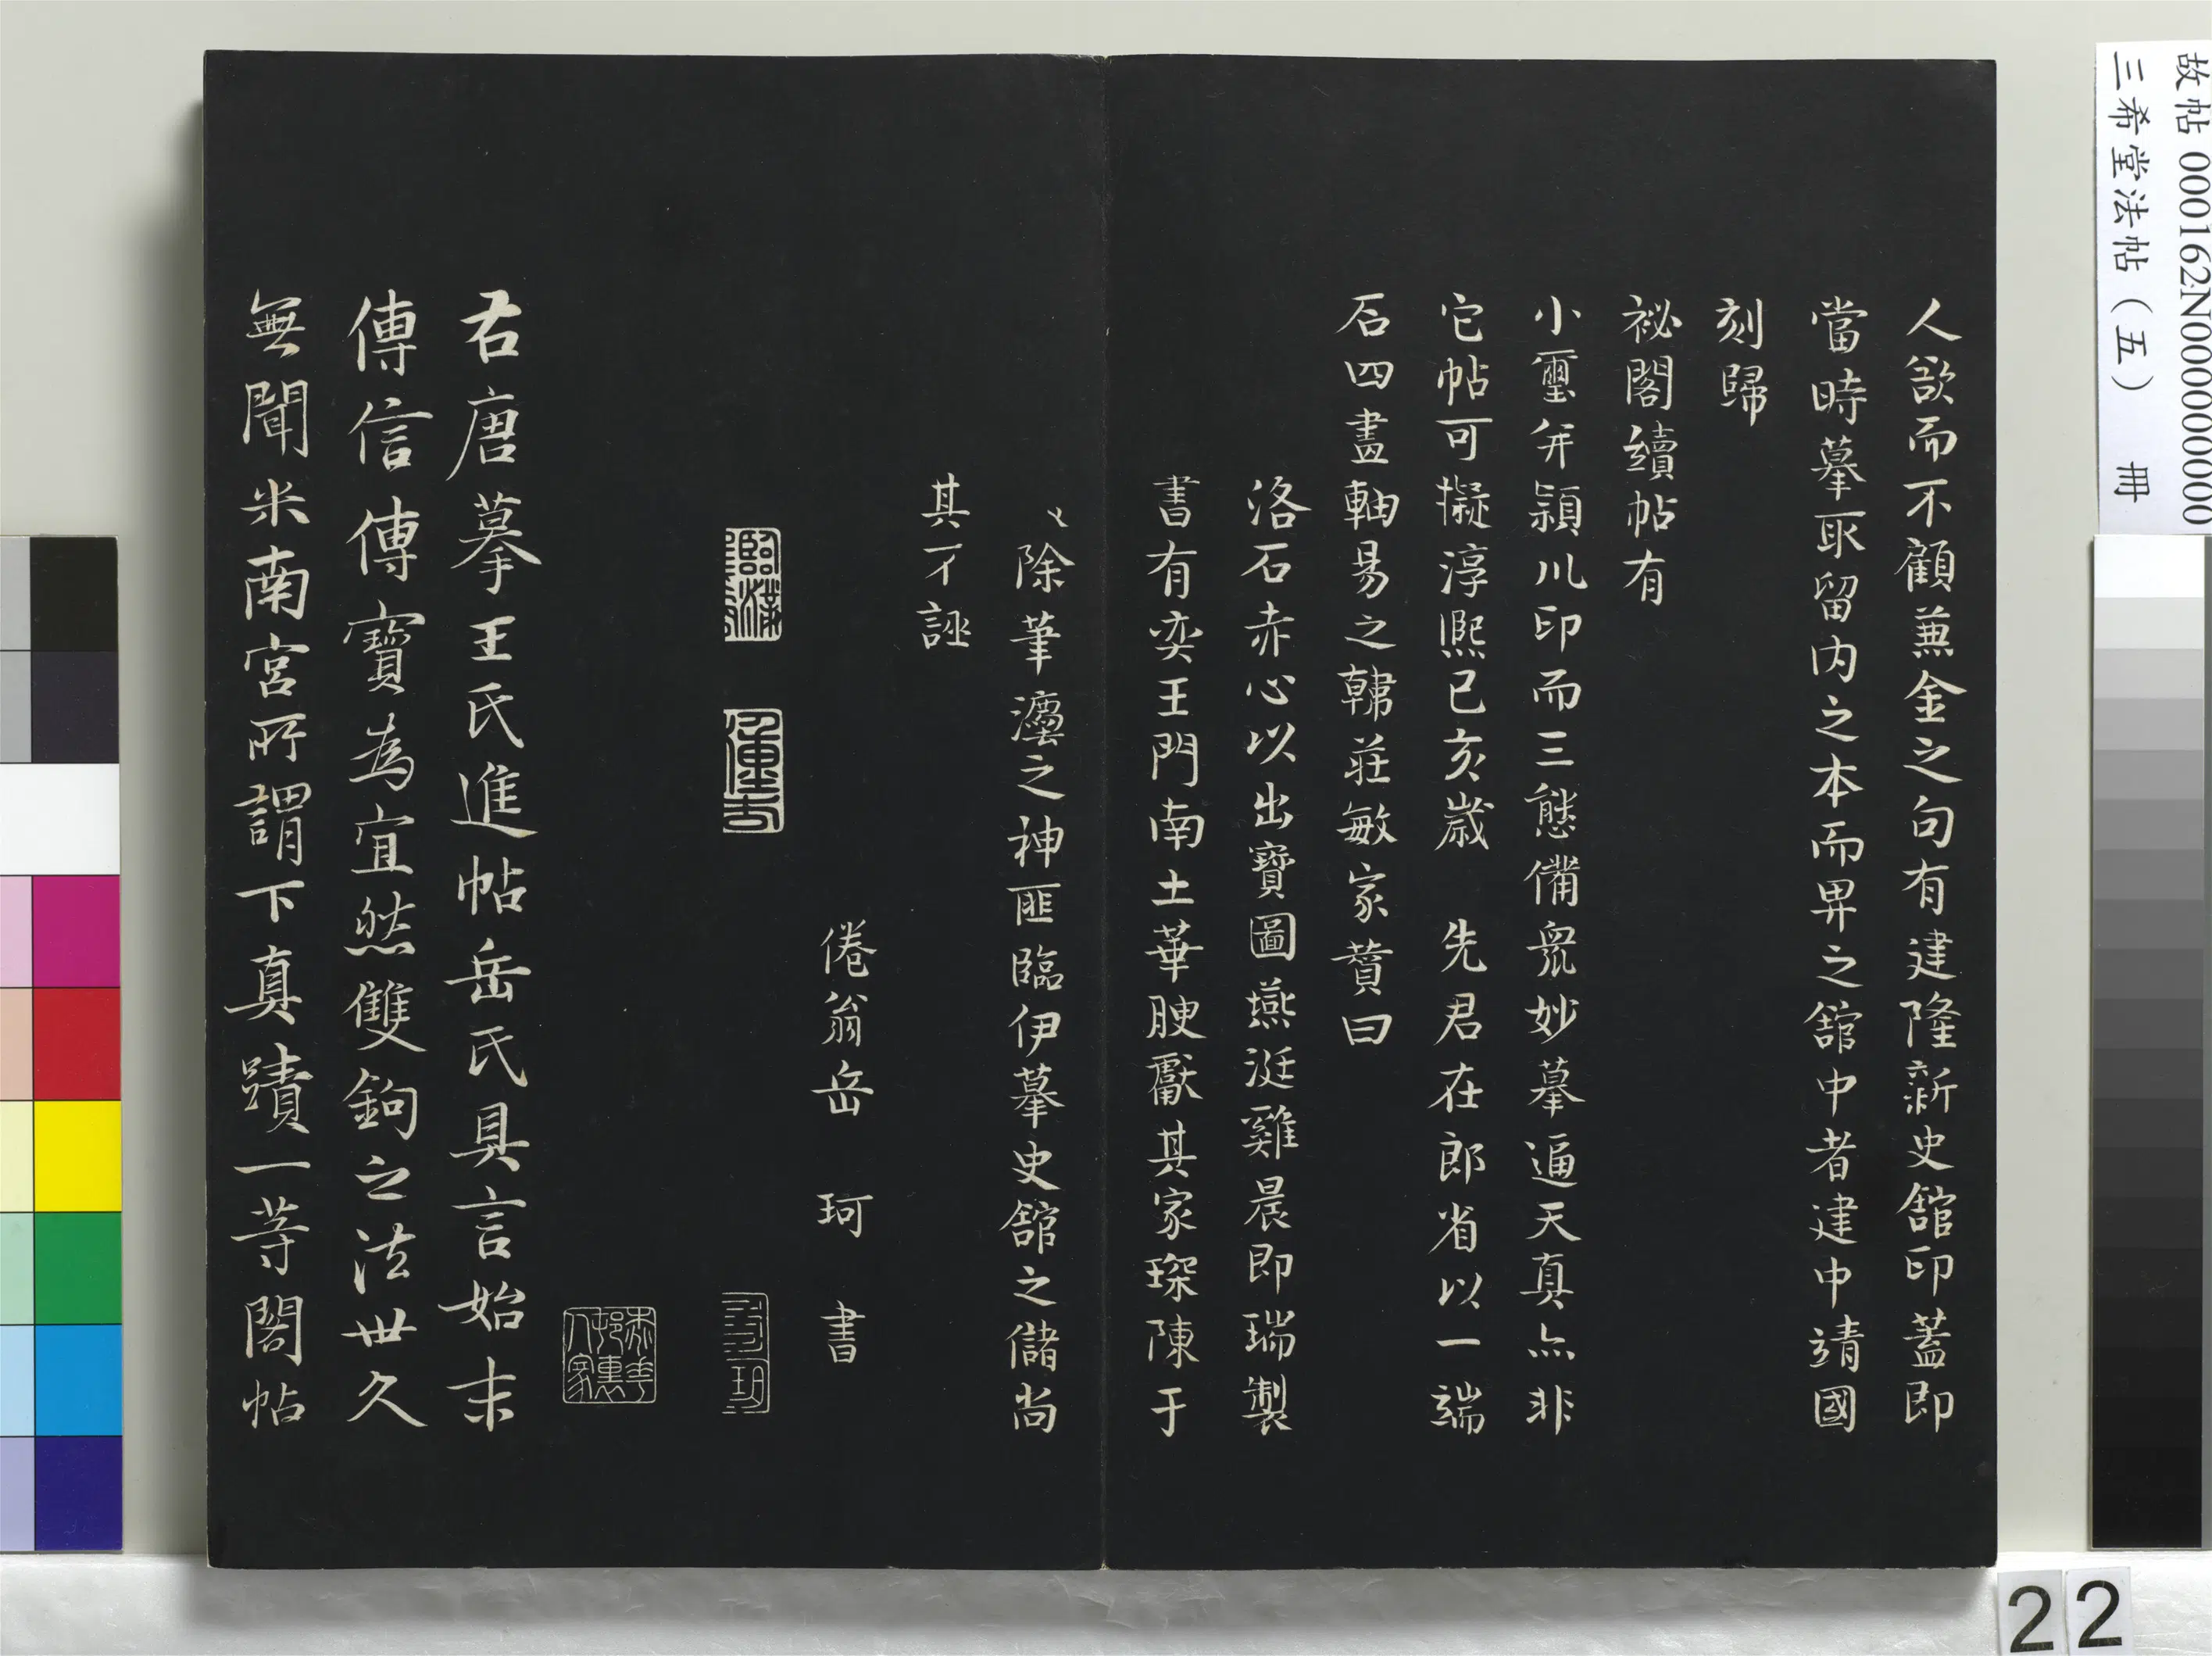 人欲而不顧蒹金之句有建隆新史館印蓋即
當時摹取留内之本而畀之館中者建中靖國
刻歸
祕閣續帖有
小璽并潁川印而三態備衆妙摹逼天真亦非
它帖可擬淳熙已亥歲 先君在郎省以一端
石四畫軸易之韓莊敏家贊曰
洛石赤心以出寶圖燕涎雞晨即瑞製
書有奕王門南土華腴獻其家琛陳于
〻除筆灋之神匪臨伊摹史館之儲尚
其不誣
倦翁岳珂書
右唐摹王氏進帖岳氏具言始末
傳信傳寶為宜然雙鉤之法世久
無聞米南宮所謂下真蹟一等閣帖
故帖 000162N000000000
三希堂法帖（五） 冊
22